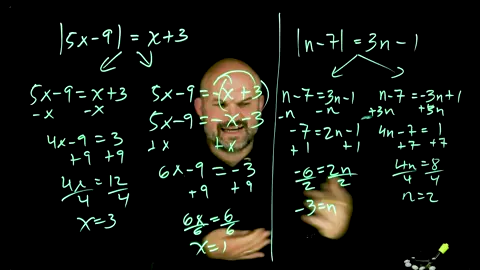 |5x-9| = x+3
5x-9=x+3
-x -x
4x-9=3
+9 +9
4x/4=12/4
x=3
5x-9=-(x+3)
5x-9=-x-3
+x +x
6x-9=-3
+9 +9
6x/6=6/6
x=1
|n-7|=3n-1
n-7=3n-1
-n -n
-7=2n-1
+1 +1
-6/2=2n/2
-3=n
n-7=-3n+1
+3n +3n
4n-7=1
+7 +7
4n/4=8/4
n=2